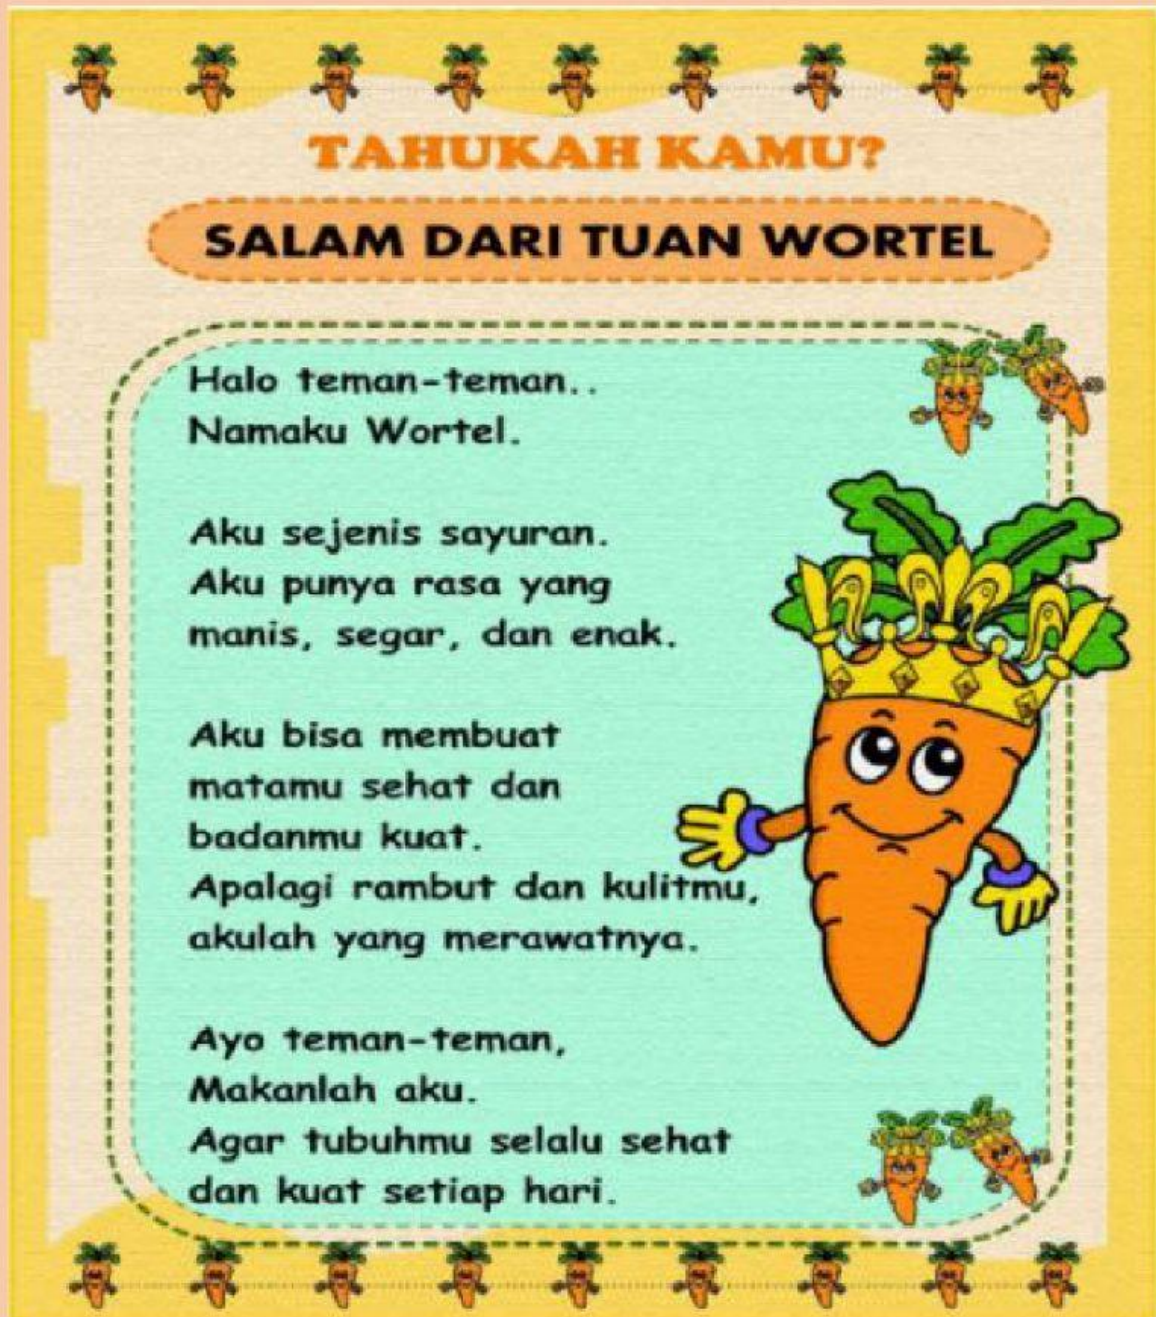 TAHUKAH KAMU?
SALAM DARI TUAN WORTEL
Halo teman-teman..
Namaku Wortel.
Aku sejenis sayuran.
Aku punya rasa yang
manis, segar, dan enak.
Aku bisa membuat
matamu sehat dan
badanmu kuat.
Apalagi rambut dan kulitmu,
akulah yang merawatnya.
Ayo teman-teman,
Makanlah aku.
Agar tubuhmu selalu sehat
dan kuat setiap hari.